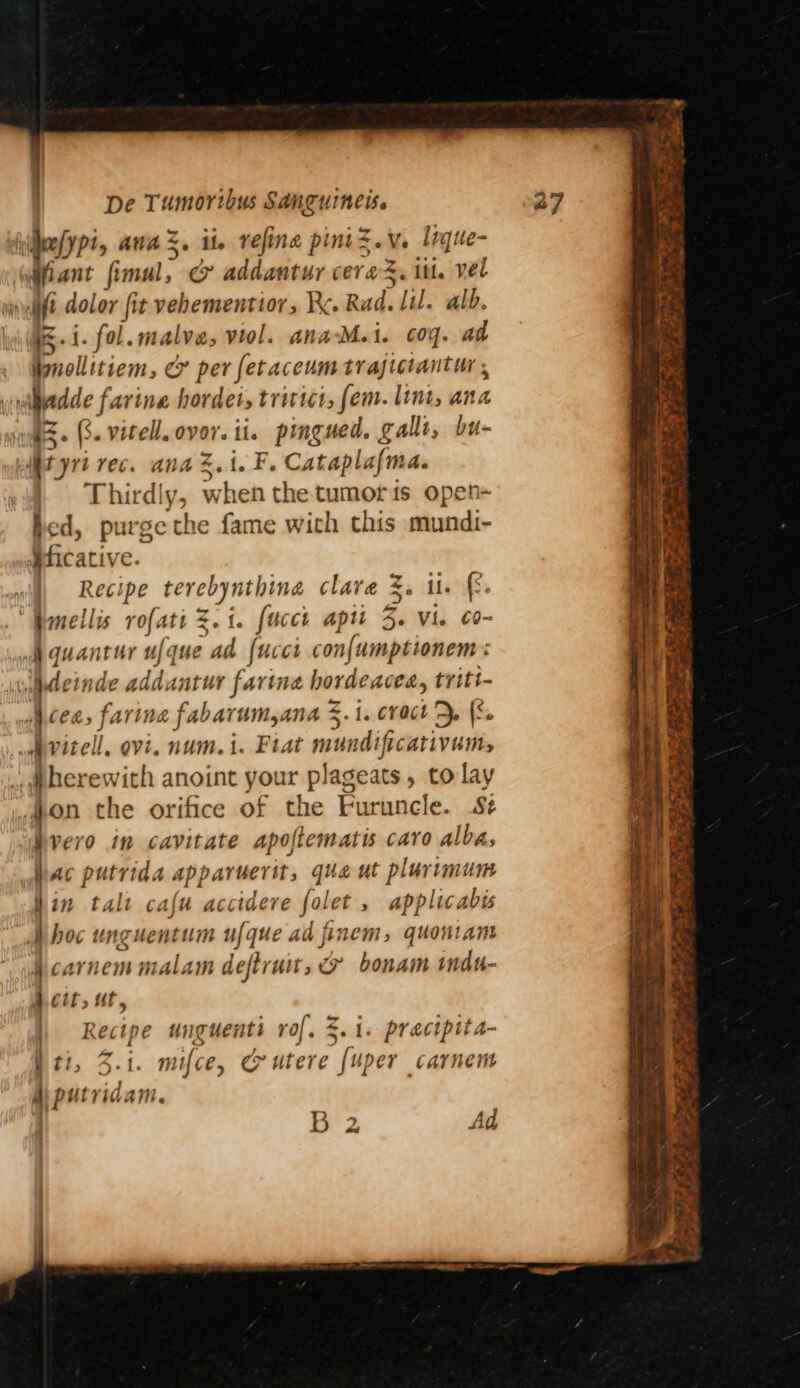 De Tumoribus Sanguineis. 27
œſypi, ana ℥. ii. reſinæ pini ℥. v. lique-
fiant ſimul, & addantur ceræ ℥. iii. vel
ſi dolor ſit vehementior, ℞. Rad. lil. alb.
℥. i. fol. malvæ, viol. ana M. i. coq. ad
mollitiem, & per ſetaceum trajiciantur,
adde farinæ hordei, tritici, ſem. lini, ana
℥. ß. vitell. ovor. ii. pingued. galli, bu-
tyri rec. ana ℥. i. F. Cataplaſma.
Thirdly, when the tumor is open-
ed, purge the ſame with this mundi-
ficative.
Recipe terebynthinæ claræ ℥. ii. ß.
mellis roſati ℥. i. ſucci apii ʒ. vi. co-
quantur uſque ad ſucci conſumptionem:
deinde addantur farinæ hordeaceæ, triti-
ceæ, farinæ fabarum, ana ℥. i. croci ℈. ß.
vitell. ovi. num. i. Fiat mundificativum,
herewith anoint your plageats, to lay
on the orifice of the Furuncle. Si
vero in cavitate apoſtematis caro alba,
ac putrida apparuerit, quæ ut plurimum
in tali caſu accidere ſolet, applicabis
hoc unguentum uſque ad finem, quoniam
carnem malam deſtruit, & bonam indu-
cit, ut,
Recipe unguenti roſ. ℥. i. præcipita-
ti, ʒ. i. miſce, & utere ſuper carnem
putridam.
B 2 Ad